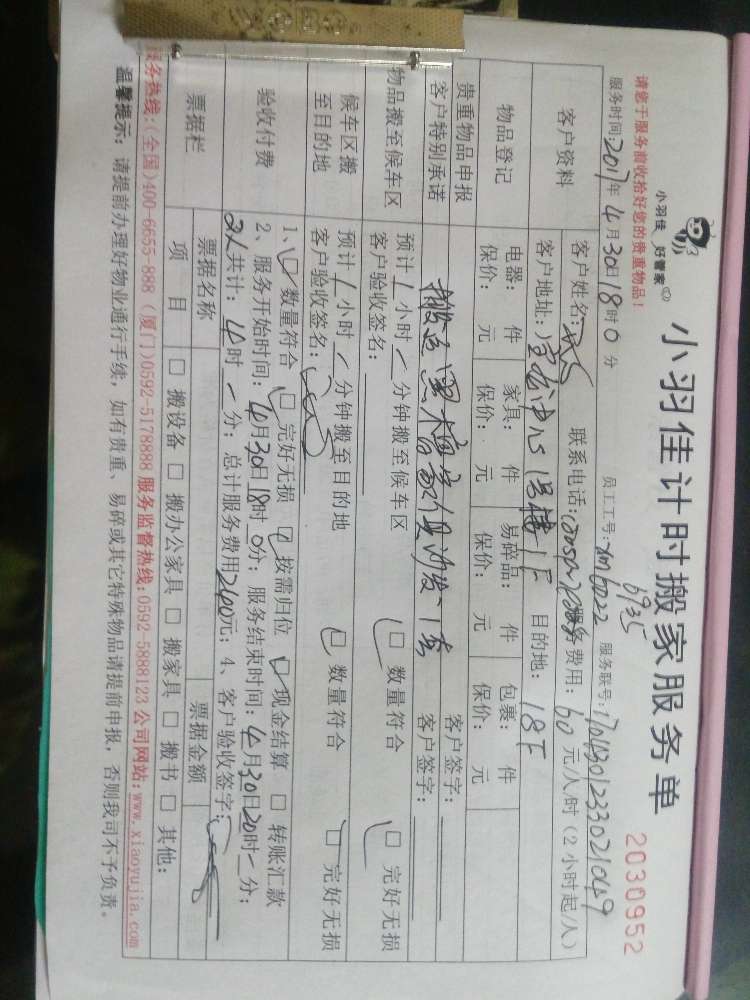 小羽佳 好管家
小羽佳计时搬家服务单
2030952
6935
请您于服务前收拾好您的贵重物品!
服务时间:2017年4月30日18时0分 员工工号:xm6022 服务联号:
客户资料
客户姓名: 联系电话: 服务费用:60元/人/时(2小时起/人)
客户地址: 中心1号楼1F 目的地:18F
物品登记
电器: 件 家具: 件 易碎品: 件 包裹: 件
保价: 元 保价: 元 保价: 元 保价: 元
贵重物品申报 客户签字:
客户特别承诺 搬运黑檀 沙发一套 客户签字:
物品搬至候车区
预计1小时/分钟搬至候车区 □ 数量符合 □ 完好无损
客户验收签名:
候车区搬至目的地
预计1小时/分钟搬至目的地 □ 数量符合 □ 完好无损
客户验收签名:
验收付费
1、□ 数量符合 □ 完好无损 □ 按需归位 □ 现金结算 □ 转账汇款
2、服务开始时间:4月30日18时0分; 服务结束时间:4月30日20时-分;
2人共计:4时-分; 总计服务费用240元; 4、客户验收签字:
票据栏
票据名称 票据金额
项目 □ 搬设备 □ 搬办公家具 □ 搬家具 □ 搬书 □ 其他:
服务热线:(全国)400-6655-888 (厦门)0592-5178888 服务监督热线:0592-5888123 公司网站:www.xiaoyujia.com
温馨提示: 请提前办理好物业通行手续, 如有贵重、易碎或其它特殊物品请提前申报, 否则我司不予负责。